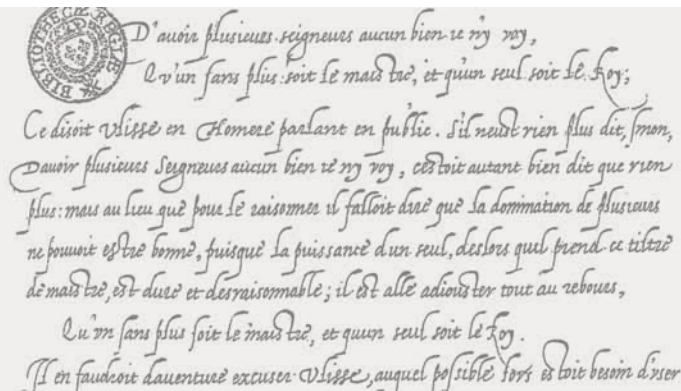 BIBLIOTHECÆ REGIÆ
D'auoir plusieurs seigneurs aucun bien ie n'y voy,
Qv'un sans plus soit le maistre, et qu'un seul soit le Roy;
Ce disoit vlisse en Homere parlant en public. S'il neust rien plus dit, sinon,
Dauoir plusieurs Seigneurs aucun bien ie ny voy, cestoit autant bien dit que rien
plus: mais au lieu que pour le raisonner il falloit dire que la domination de plusieurs
ne pouuoit estre bonne, puisque la puissance d'un seul, deslors quil prend ce tiltre
de maistre, est dure et desraisonnable; il est allé adiouster tout au rebours,
Qu'un sans plus soit le maistre, et quun seul soit le Roy.
Il en faudroit dauenture excuser Vlisse, auquel possible lors estoit besoin d'vser